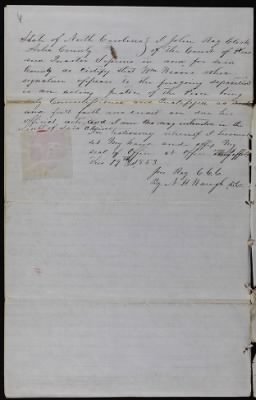 State of North Carolina } I John Ray Clerk
Ashe County } of the Court of Pleas
and Quarter Sessions in and for said
County do Certify that Wm Weaver whose
signature appears to the foregoing deposition
is an acting Justice of the Peace being
duly Commissioned and qualified as such
and full faith and credit are due his
official acts and I am no way interested in the
result of said Claim
In testimony whereof I hereunto
set My hand and affix My
seal of Office at office
Dec 17th 1853
Jno Ray C.C.C
By N H Waugh